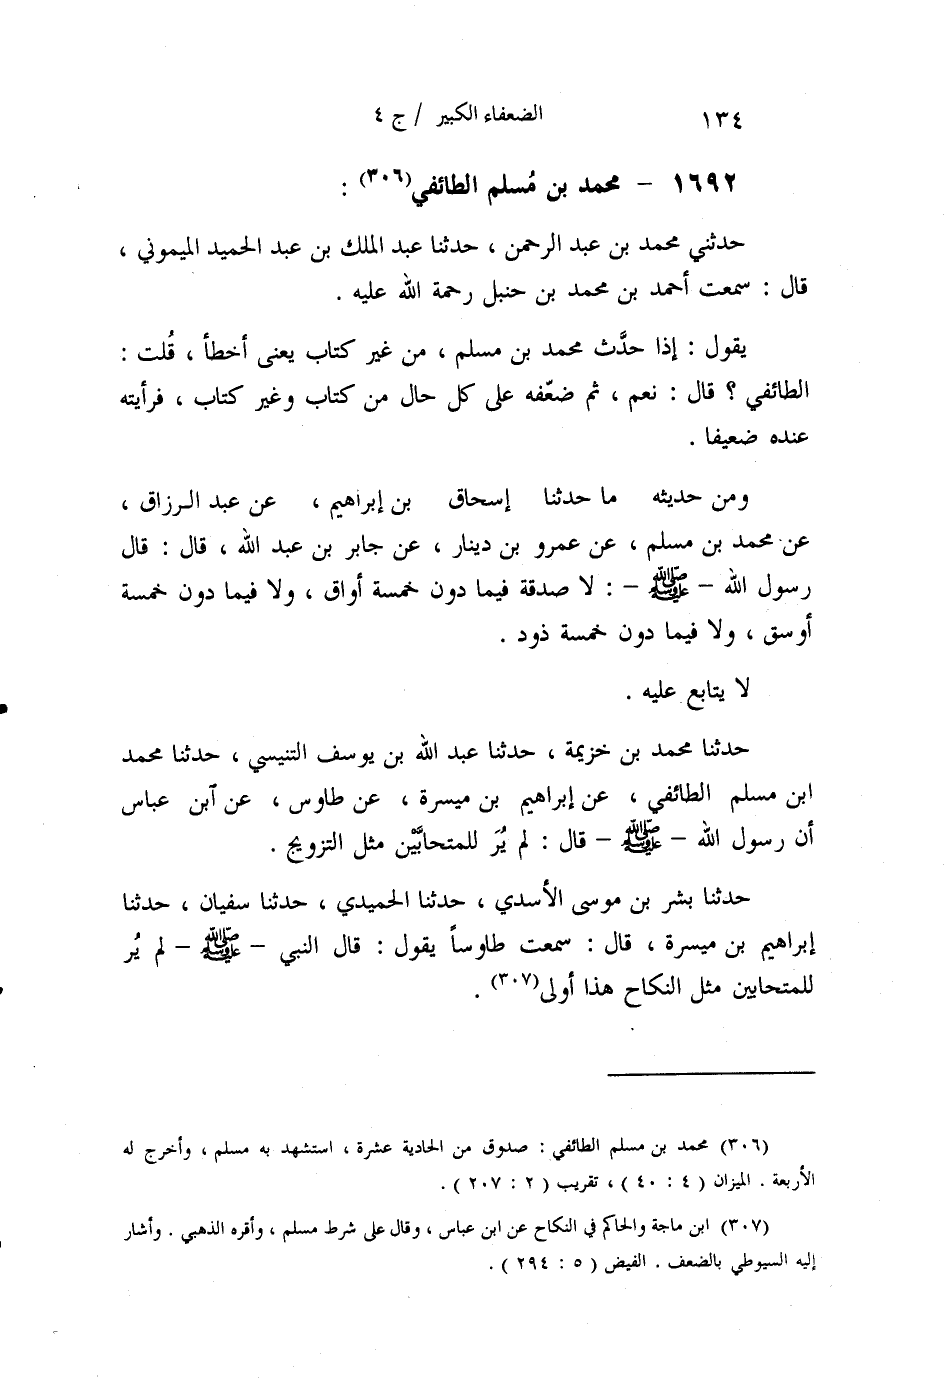 ١٣٤ الضعفاء الكبير / ج ٤
١٦٩٢ - محمد بن مُسلم الطائفي(٣٠٦) :
حدثني محمد بن عبد الرحمن ، حدثنا عبد الملك بن عبد الحميد الميموني ،
قال : سمعت أحمد بن محمد بن حنبل رحمة الله عليه .
يقول : إذا حدَّث محمد بن مسلم ، من غير كتاب يعنى أخطأ ، قُلت :
الطائفي ؟ قال : نعم ، ثم ضعّفه على كل حال من كتاب وغير كتاب ، فرأيته
عنده ضعيفا .
ومن حديثه ما حدثنا إسحاق بن إبراهيم ، عن عبد الرزاق ،
عن محمد بن مسلم ، عن عمرو بن دينار ، عن جابر بن عبد الله ، قال : قال
رسول الله - ﷺ - : لا صدقة فيما دون خمسة أواق ، ولا فيما دون خمسة
أوسق ، ولا فيما دون خمسة ذود .
لا يتابع عليه .
حدثنا محمد بن خزيمة ، حدثنا عبد الله بن يوسف التنيسي ، حدثنا محمد
ابن مسلم الطائفي ، عن إبراهيم بن ميسرة ، عن طاوس ، عن آبن عباس
أن رسول الله - ﷺ - قال : لم يُرَ للمتحابَّيْن مثل التزويج .
حدثنا بشر بن موسى الأسدي ، حدثنا الحميدي ، حدثنا سفيان ، حدثنا
إبراهيم بن ميسرة ، قال : سمعت طاوساً يقول : قال النبي - ﷺ - لم يُر
للمتحابين مثل النكاح هذا أولى(٣٠٧) .
(٣٠٦) محمد بن مسلم الطائفي : صدوق من الحادية عشرة ، استشهد به مسلم ، وأخرج له
الأربعة . الميزان ( ٤ : ٤٠ ) ، تقريب ( ٢ : ٢٠٧ ) .
(٣٠٧) ابن ماجة والحاكم في النكاح عن ابن عباس ، وقال على شرط مسلم ، وأقره الذهبي . وأشار
إليه السيوطي بالضعف . الفيض ( ٥ : ٢٩٤ ) .